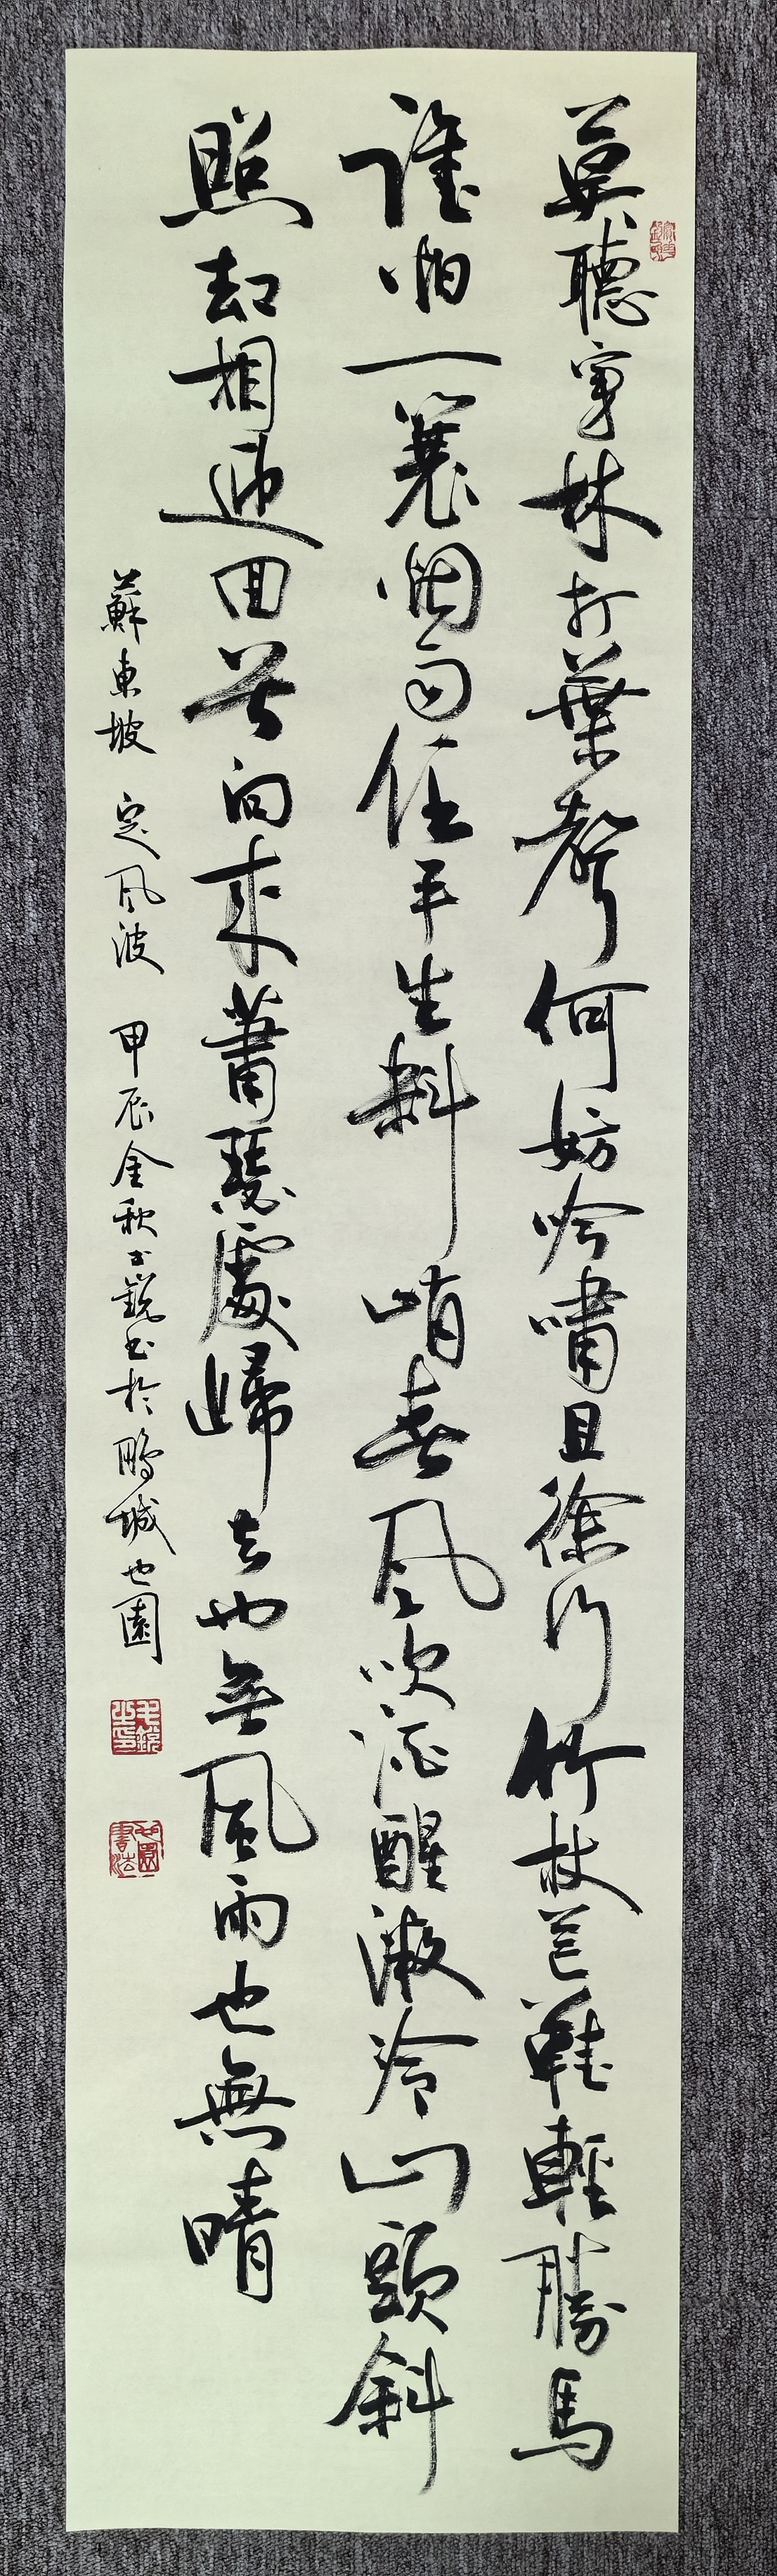 莫聽穿林打葉聲何妨吟嘯且徐行竹杖芒鞋輕勝馬
誰怕一蓑烟雨任平生料峭春風吹酒醒微冷山頭斜
照却相迎回首向來蕭瑟處歸去也無風雨也無晴
蘇東坡 定風波 甲辰金秋士銳書於鵬城也園